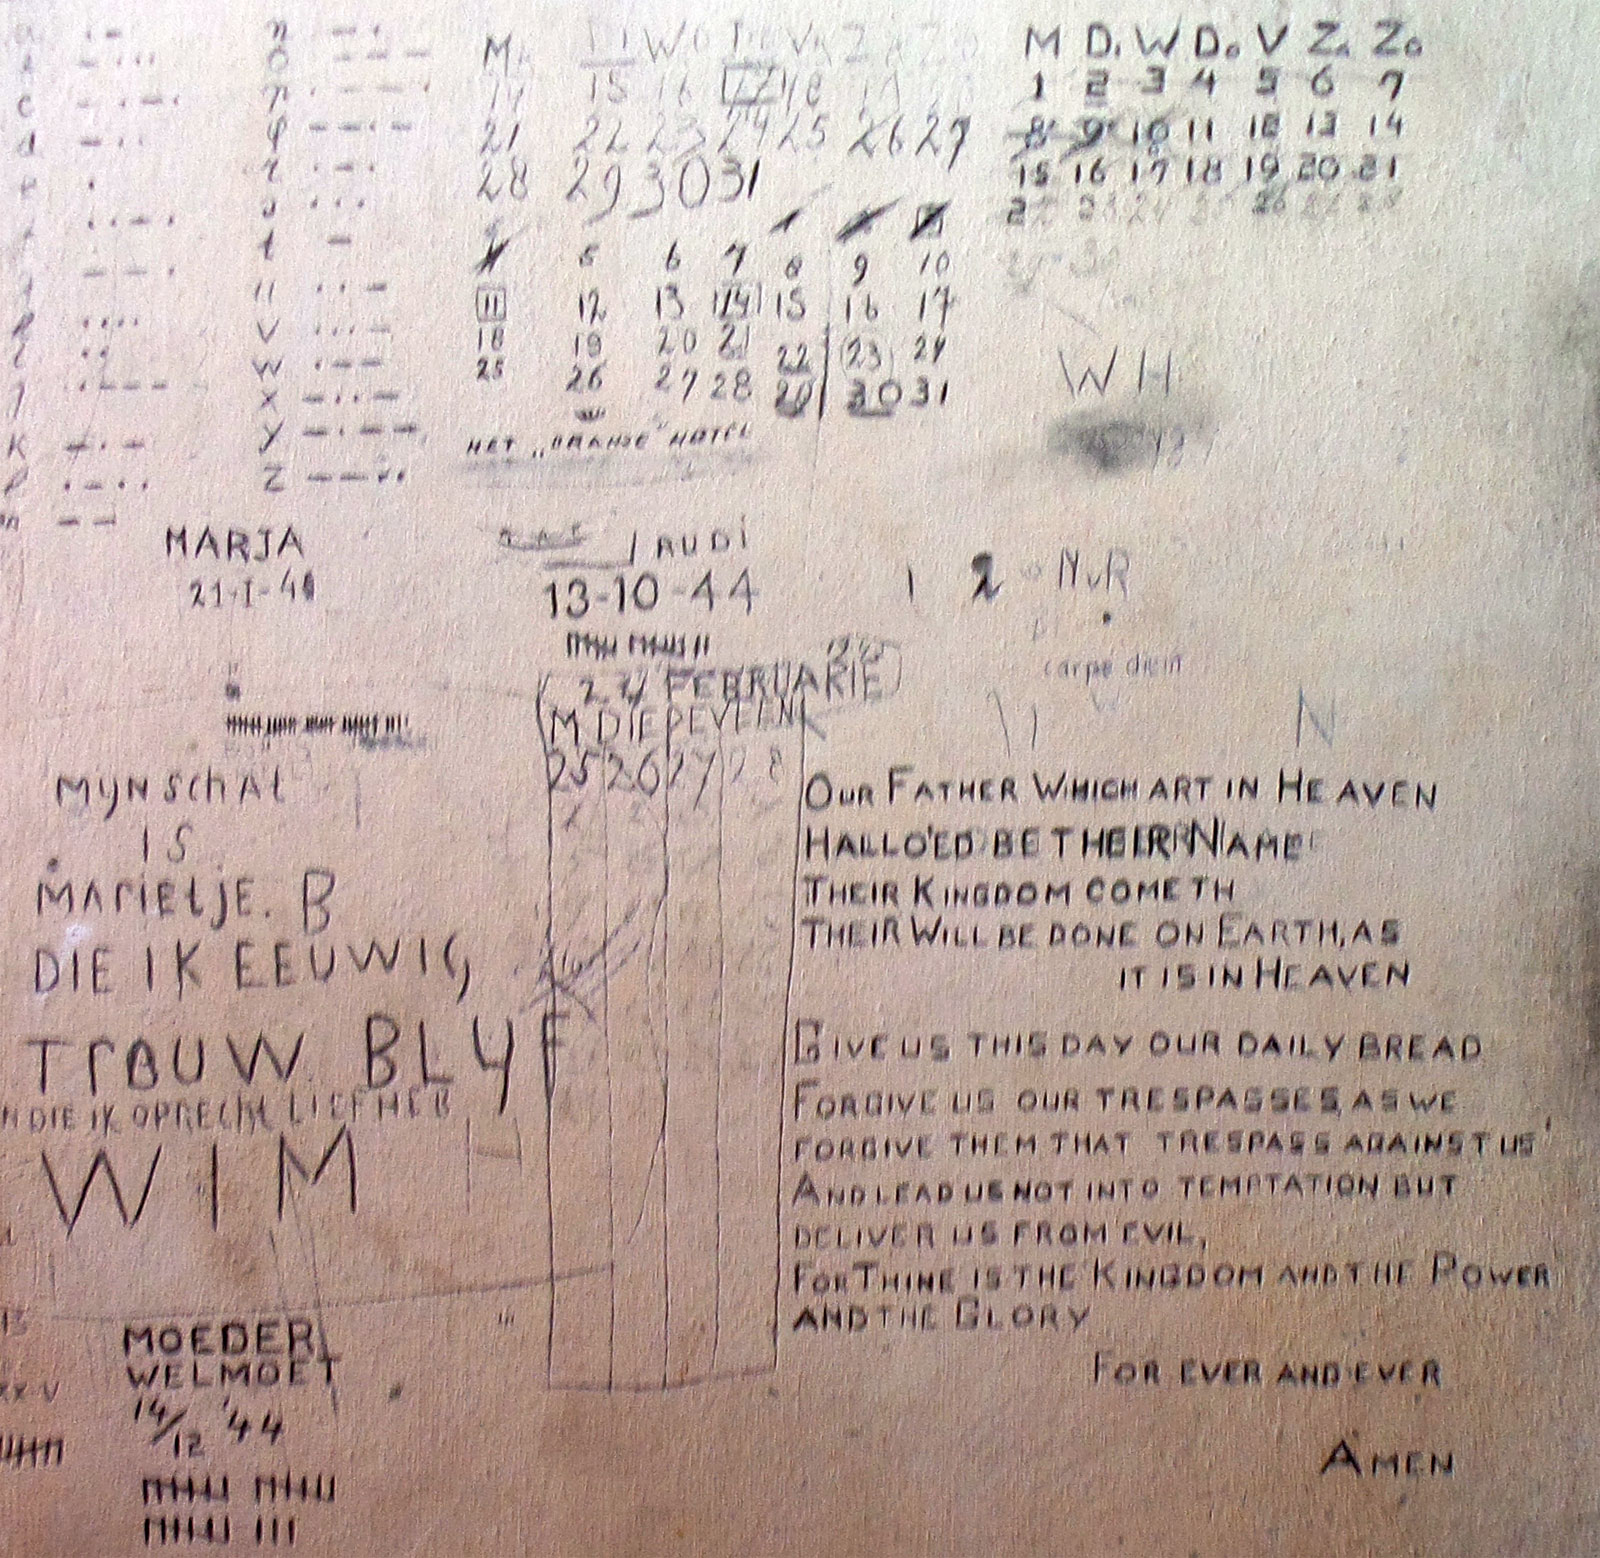 n
c
q
d
r
t
u
V
W
X
K
Y
l
Z
M W V
15 16 17 18
21 22 23 24 25 26 27
28 29 30 31
5 6 7 8 9 10
11 12 13 14 15 16 17
18 19 20 21 22 23 24
25 26 27 28 29 30 31
HET „ORANJE" HOTEL
M Di W Do V Za Zo
1 2 3 4 5 6 7
8 9 10 11 12 13 14
15 16 17 18 19 20 21
WH
MARJA
RUDI
13-10-44
1 2 NvR
carpe diem
(24 FEBRUARIE)
M DIEPEVEEN
25 26 27 28
N
MYN SCHAt
IS
MARIEtJE. B
DIE IK EEUWIG
TROUW BLYF
DIE IK OPRECHt LIEF HEB
WIM
MOEDER
WELMOET
14/12 '44
OUR FATHER WHICH ART IN HEAVEN
HALLO'ED BE THEIR NAME
THEIR KINGDOM COMETH
THEIR WILL BE DONE ON EARTH, AS
IT IS IN HEAVEN
GIVE US THIS DAY OUR DAILY BREAD
FORGIVE US OUR TRESPASSES, AS WE
FORGIVE THEM THAT TRESPASS AGAINST US'
AND LEAD US NOT INTO TEMPTATION BUT
DELIVER US FROM EVIL,
FOR THINE IS THE KINGDOM AND THE POWER
AND THE GLORY
FOR EVER AND EVER
AMEN